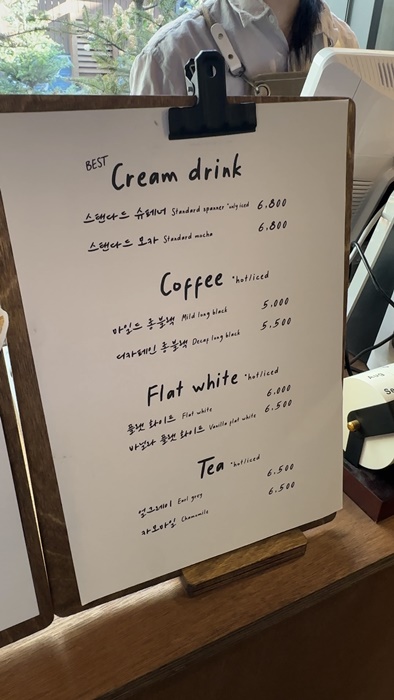 BEST
Cream drink
스탠다드 슈페너 Standard spanner *only iced 6.800
스탠다드 모카 Standard mocha 6.800
Coffee *hot/iced
마일드 롱블랙 Mild long black 5.000
디카페인 롱블랙 Decaf long black 5.500
Flat white *hot/iced
플랫 화이트 Flat white 6.000
바닐라 플랫 화이트 Vanilla flat white 6.500
Tea *hot/iced
얼그레이 Earl grey 6.500
카모마일 Chamomile 6.500